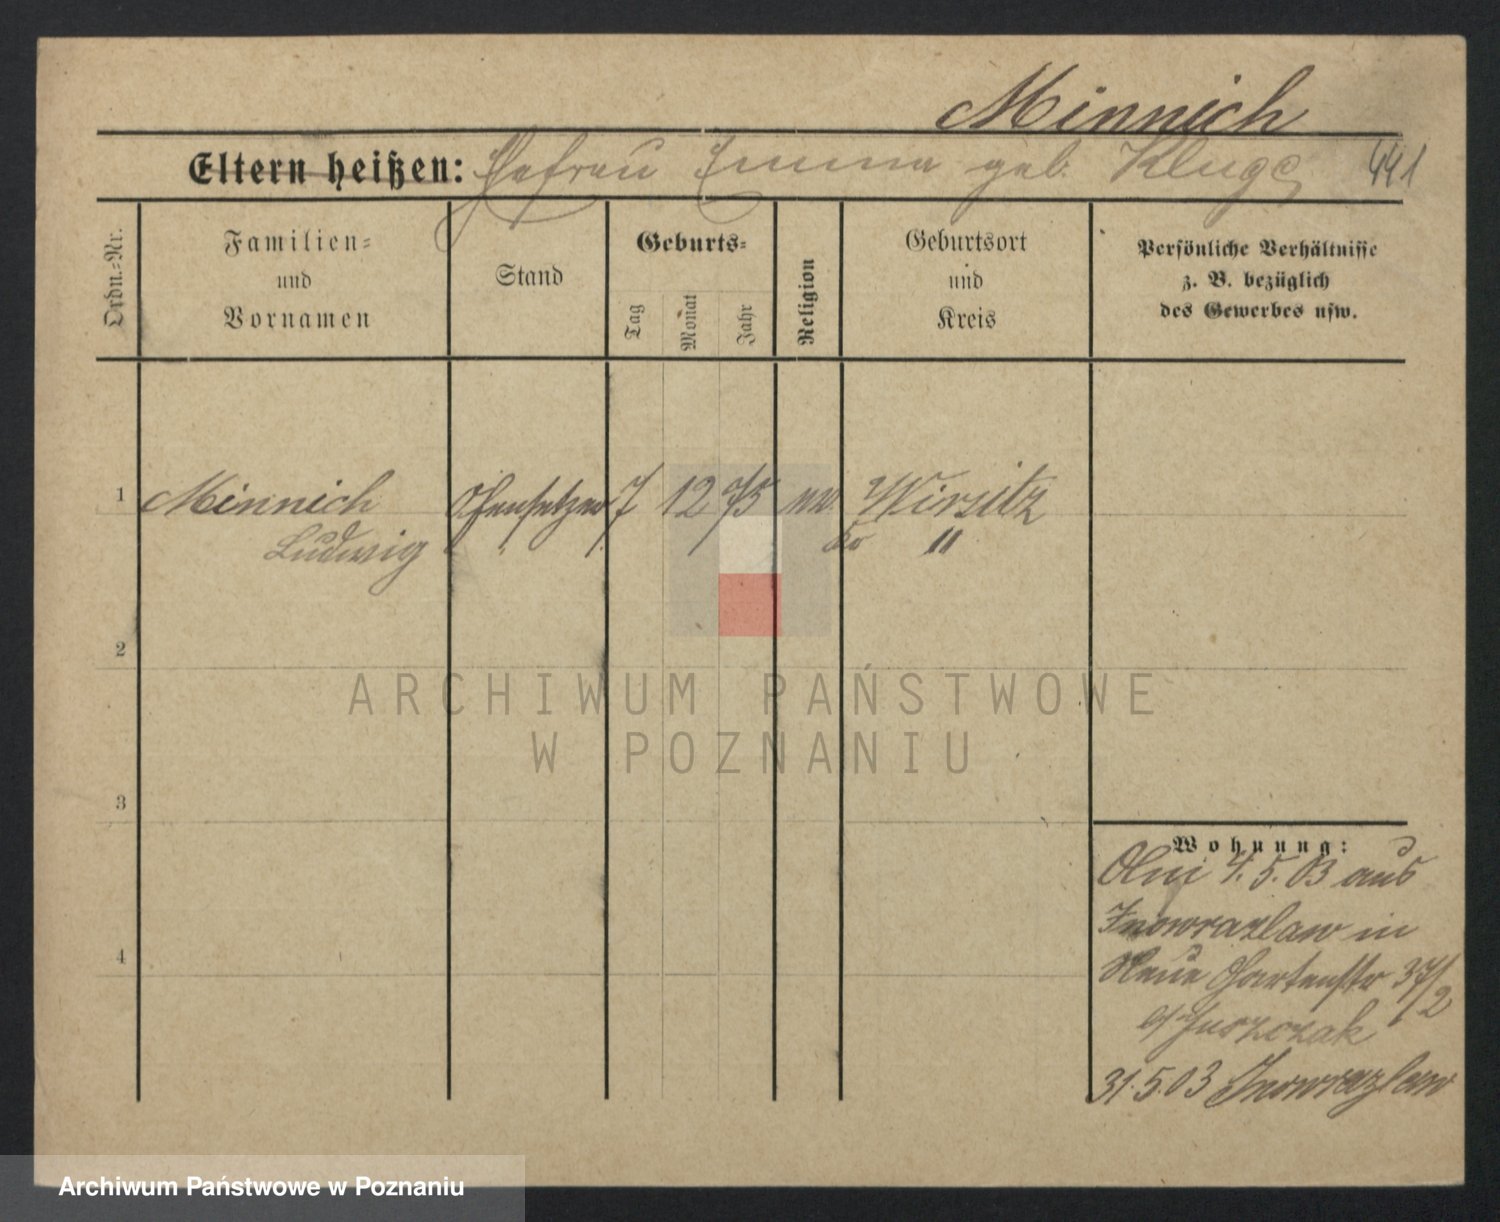 Minnich
Eltern heißen: Ehefrau Emma geb. Kluge 441
Ordn.=Nr.
Familien=
und
Vornamen
Stand
Geburts=
Tag
Monat
Jahr
Religion
Geburtsort
und
Kreis
Persönliche Verhältnisse
z. B. bezüglich
des Gewerbes usw.
1 Minnich Ofensetzer 7 12 75 ev. Wirsitz
Ludwig "
2
3
4
ARCHIWUM PAŃSTWOWE
W POZNANIU
Wohnung:
4.5.03 aus
Inowrazlaw in
Neue Gartenstr 37/2
31.5.03 Inowrazlaw
Archiwum Państwowe w Poznaniu